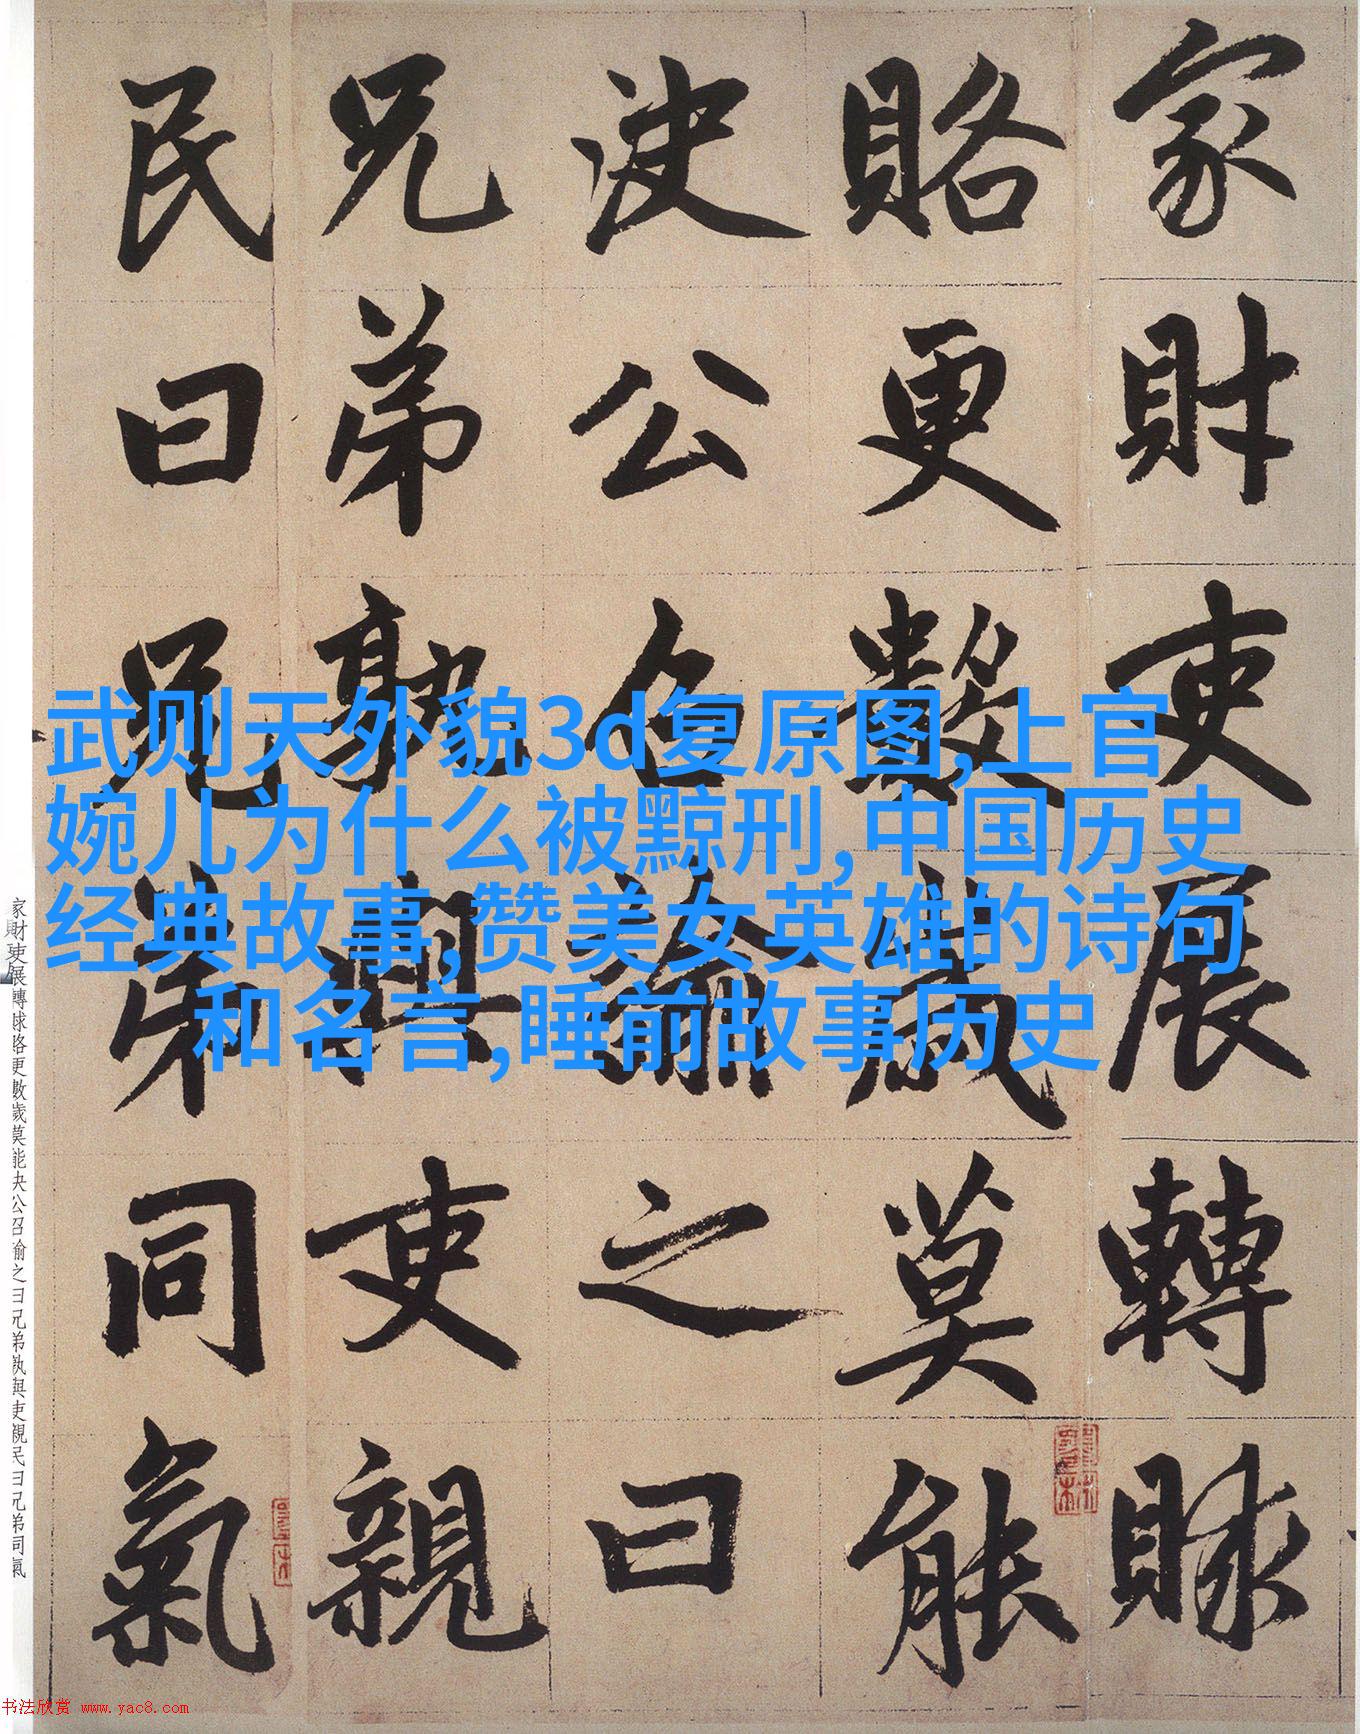 家財吏展轉賕
賂更數歲莫能
決公召諭之曰
兄弟孰與吏親
民曰兄弟同氣
武则天外貌3d复原图,上官
婉儿为什么被黥刑,中国历史
经典故事,赞美女英雄的诗句
和名言,睡前故事历史
家財吏展轉賕賂更數歲莫能决公召諭之曰兄弟孰與吏親民曰兄弟同氣
书法欣赏 www.yac8.com